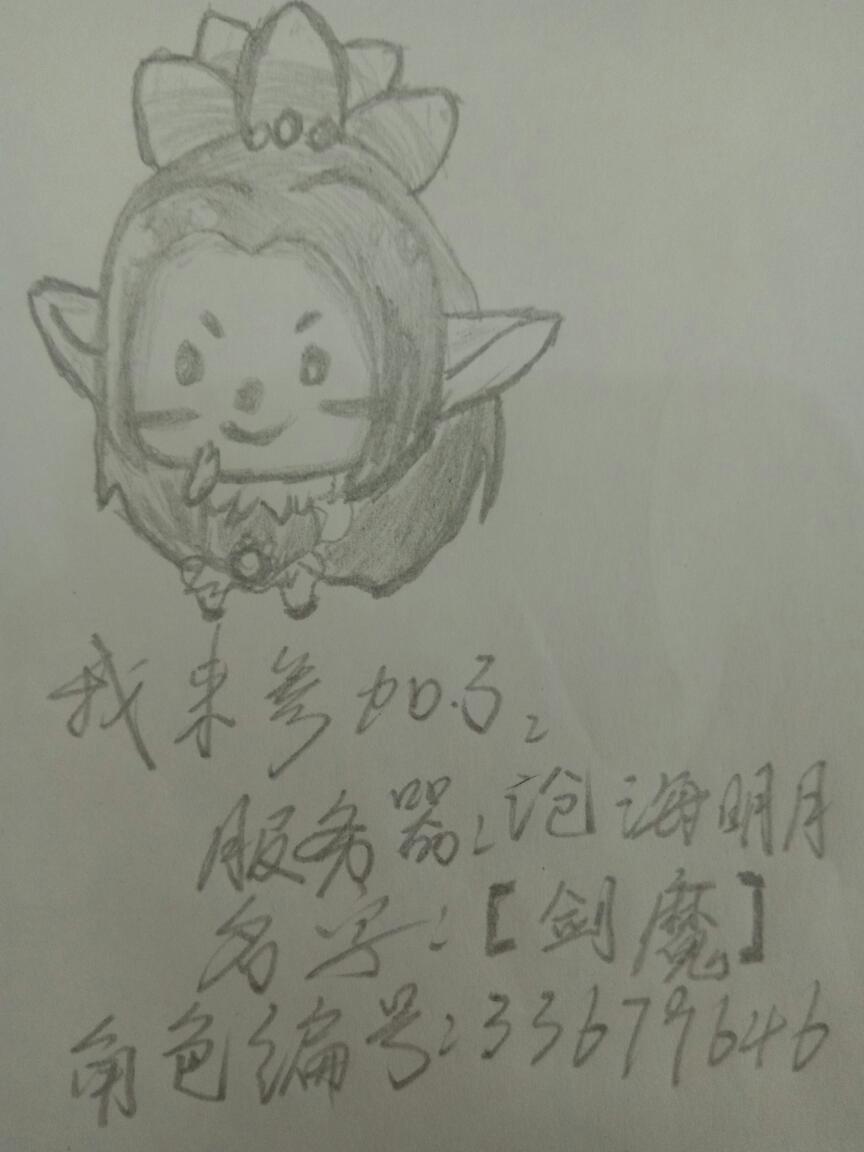 我来参加了。
服务器:沧海明月
名字:[剑魔]
角色编号:33679646